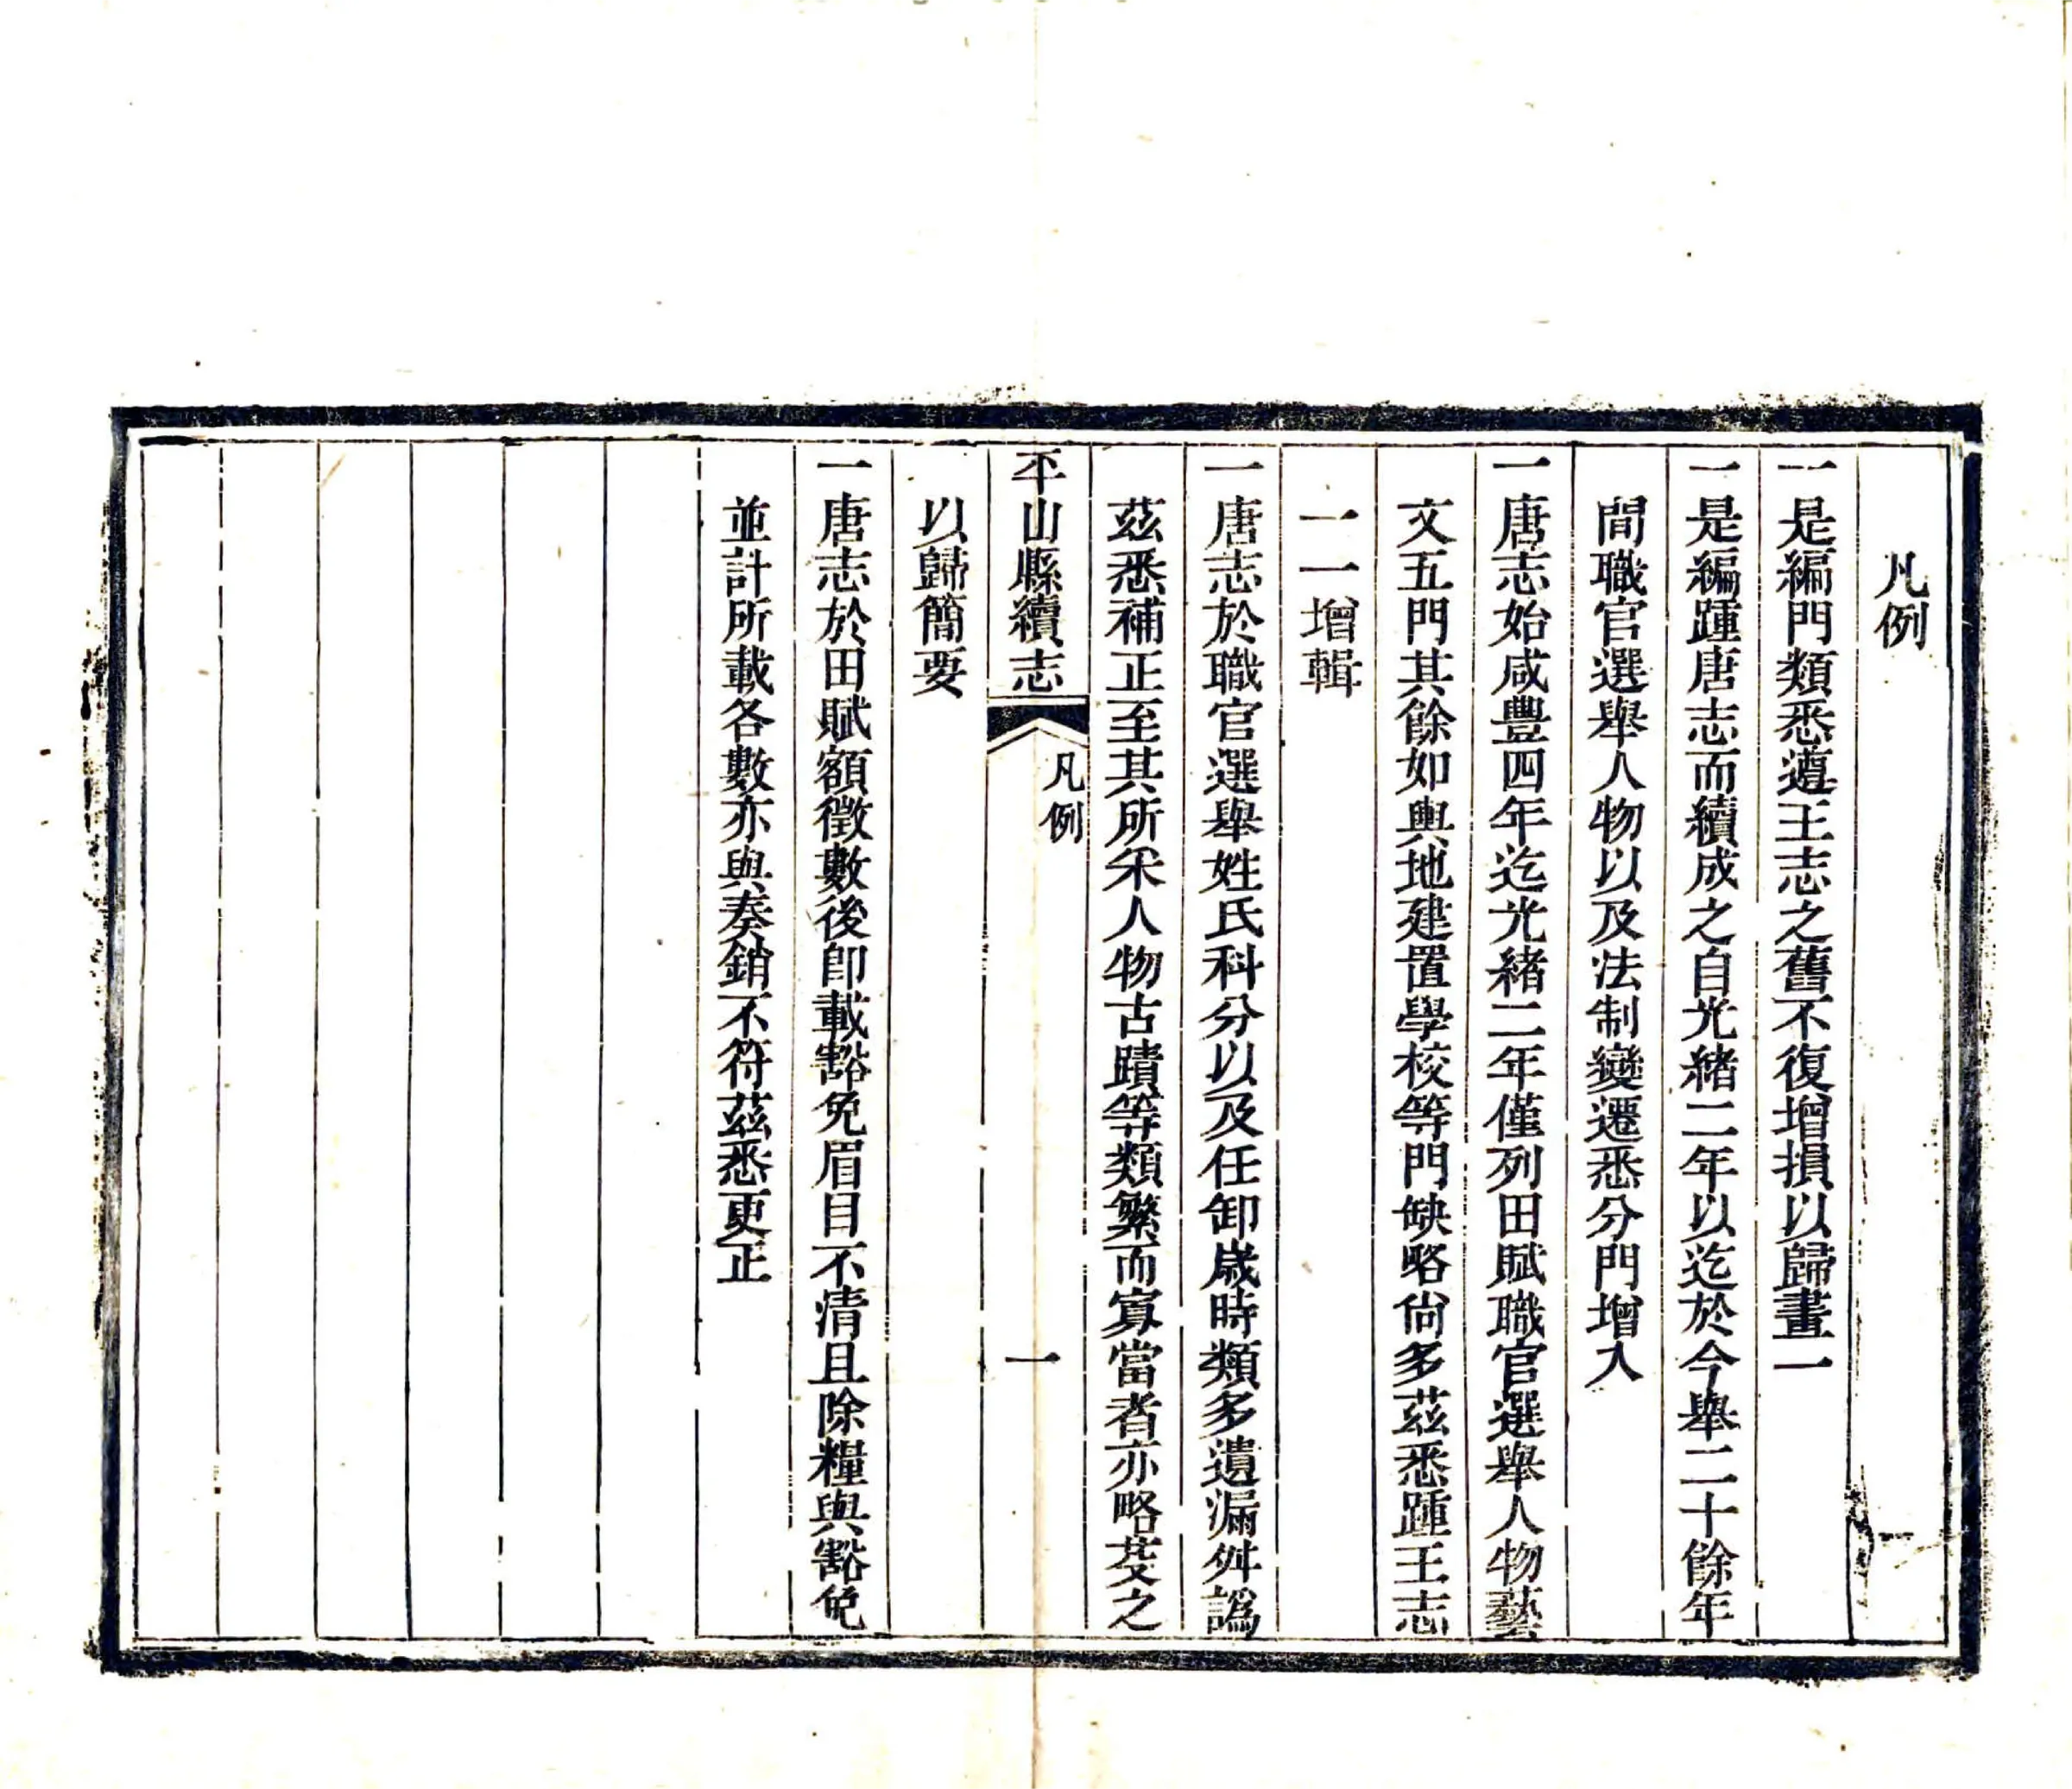 凡例
一是編門類悉遵王志之舊不復增損以歸畫一
一是編踵唐志而續成之自光緒二年以迄於今舉二十餘年
間職官選舉人物以及法制變遷悉分門增入
一唐志始咸豐四年迄光緒二年僅列田賦職官選舉人物藝
文五門其餘如輿地建置學校等門缺略尙多茲悉踵王志
一一增輯
一唐志於職官選舉姓氏科分以及任卸歲時類多遺漏舛譌
茲悉補正至其所采人物古蹟等類繁而寡當者亦略芟之
平山縣續志
凡例
一
以歸簡要
一唐志於田賦額徵數後卽載豁免眉目不清且除糧與豁免
並計所載各數亦與奏銷不符茲悉更正